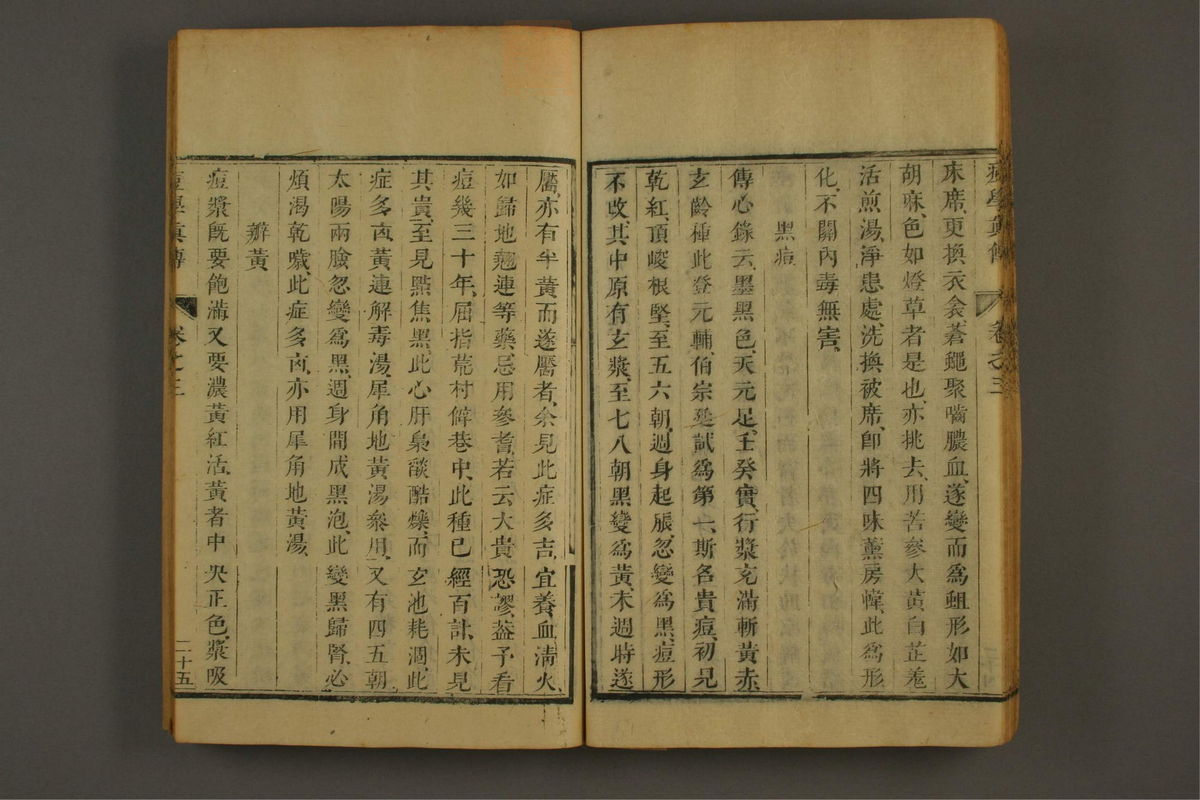 痘學眞傳 卷之三
床席更換衣衾蒼蠅聚嚙膿血遂變而爲蛆形如大
胡麻色如燈草者是也亦挑去用苦參大黃白芷卷
活煎湯淨患處洗換被席卽將四味薰房幃此爲形
化不關內毒無害
黑痘
傳心錄云墨黑色天元足壬癸實行漿充滿斬黃赤
玄齡種此登元輔伯宗廷試爲第一斯名貴痘初見
乾紅頂峻根堅至五六朝週身起脹忽變爲黑痘形
不改其中原有玄漿至七八朝黑變爲黃未週時遂
靨亦有半黃而遂靨者余見此症多吉宜養血淸火
如歸地翹連等藥忌用參耆若云大貴恐謬葢予看
痘幾三十年屈指荒村僻巷中此種已經百計未見
其貴至見點焦黑此心肝梟燄酷爍而玄池耗涸此
症多凶黃連解毒湯犀角地黃湯叅用又有四五朝
太陽兩臉忽變爲黑週身間成黑泡此變黑歸腎必
煩渴乾嘔此症多凶亦用犀角地黃湯
辨黃
痘漿旣要飽滿又要濃黃紅活黃者中央正色漿吸
痘學眞傳 卷之三 二十五